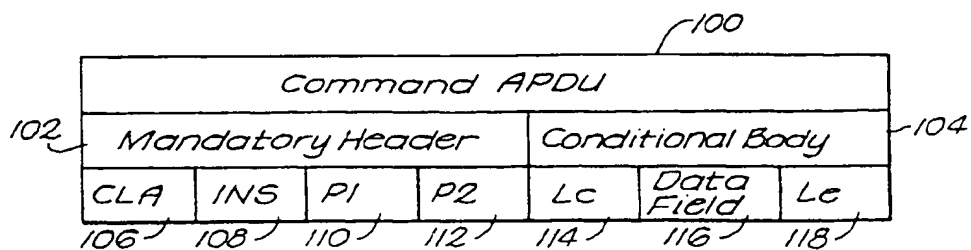 100
Command APDU
102 Mandatory Header Conditional Body 104
CLA INS P1 P2 Lc Data Field Le
106 108 110 112 114 116 118